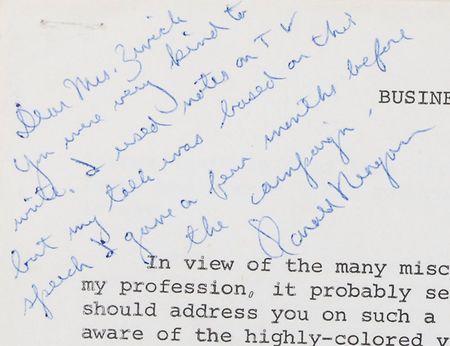 Dear Mrs. Zwick
You were very kind to
write. I used notes on TV
but my talk was based on this
speech I gave a few months before
the campaign.
Ronald Reagan
BUSINE
In view of the many misc
my profession, it probably se
should address you on such a
aware of the highly-colored v